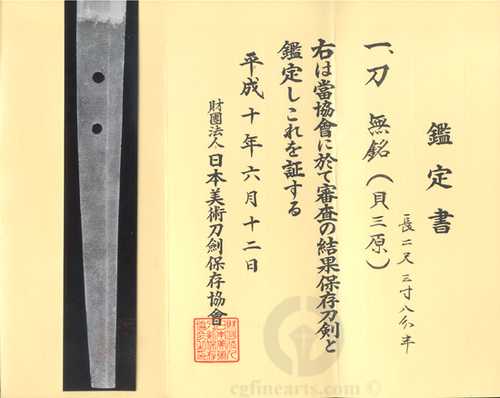 鑑定書
一、刀 無銘(貝三原)
長二尺三寸八分半
右は當協會に於て審査の結果保存刀剣と
鑑定しこれを証する
平成十年六月十二日
財團法人日本美術刀劍保存協會
cgfinearts.com ©